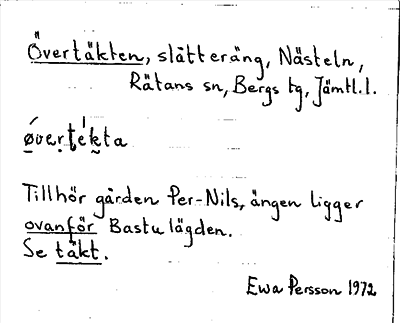 Övertäkten, slåtteräng, Nästeln,
Rätans sn, Bergs tg, Jämtl.l.
øvertekta
Tillhör gården Per-Nils, ängen ligger
ovanför Bastulägden.
Se täkt.
Ewa Persson 1972